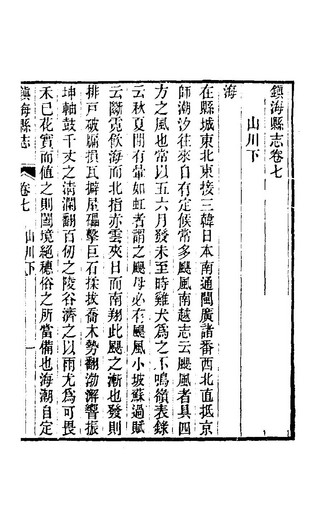 鎮海縣志卷七
山川下
海
在縣城東北東接三韓日本南通閩廣諸番西北直抵京
師潮汐往來自有定候常多颶風南越志云颶風者具四
方之風也常以五六月發未至時雞犬爲之不鳴嶺表錄
云秋夏閒有暈如虹者謂之颶母必有颶風小坡蘇過賦
云斷霓飲海而北指赤雲夾日而南翔此颶之漸也發則
排戸破牖殞瓦擗屋礧擊巨石揉拔喬木勢翻渤澥響振
坤軸鼓千丈之淸瀾翻百仞之陵谷濟之以雨尤爲可畏
禾已花實而値之則閭境絕穗俗之所當備也海潮自定
鎮海縣志
卷七
山川下
一